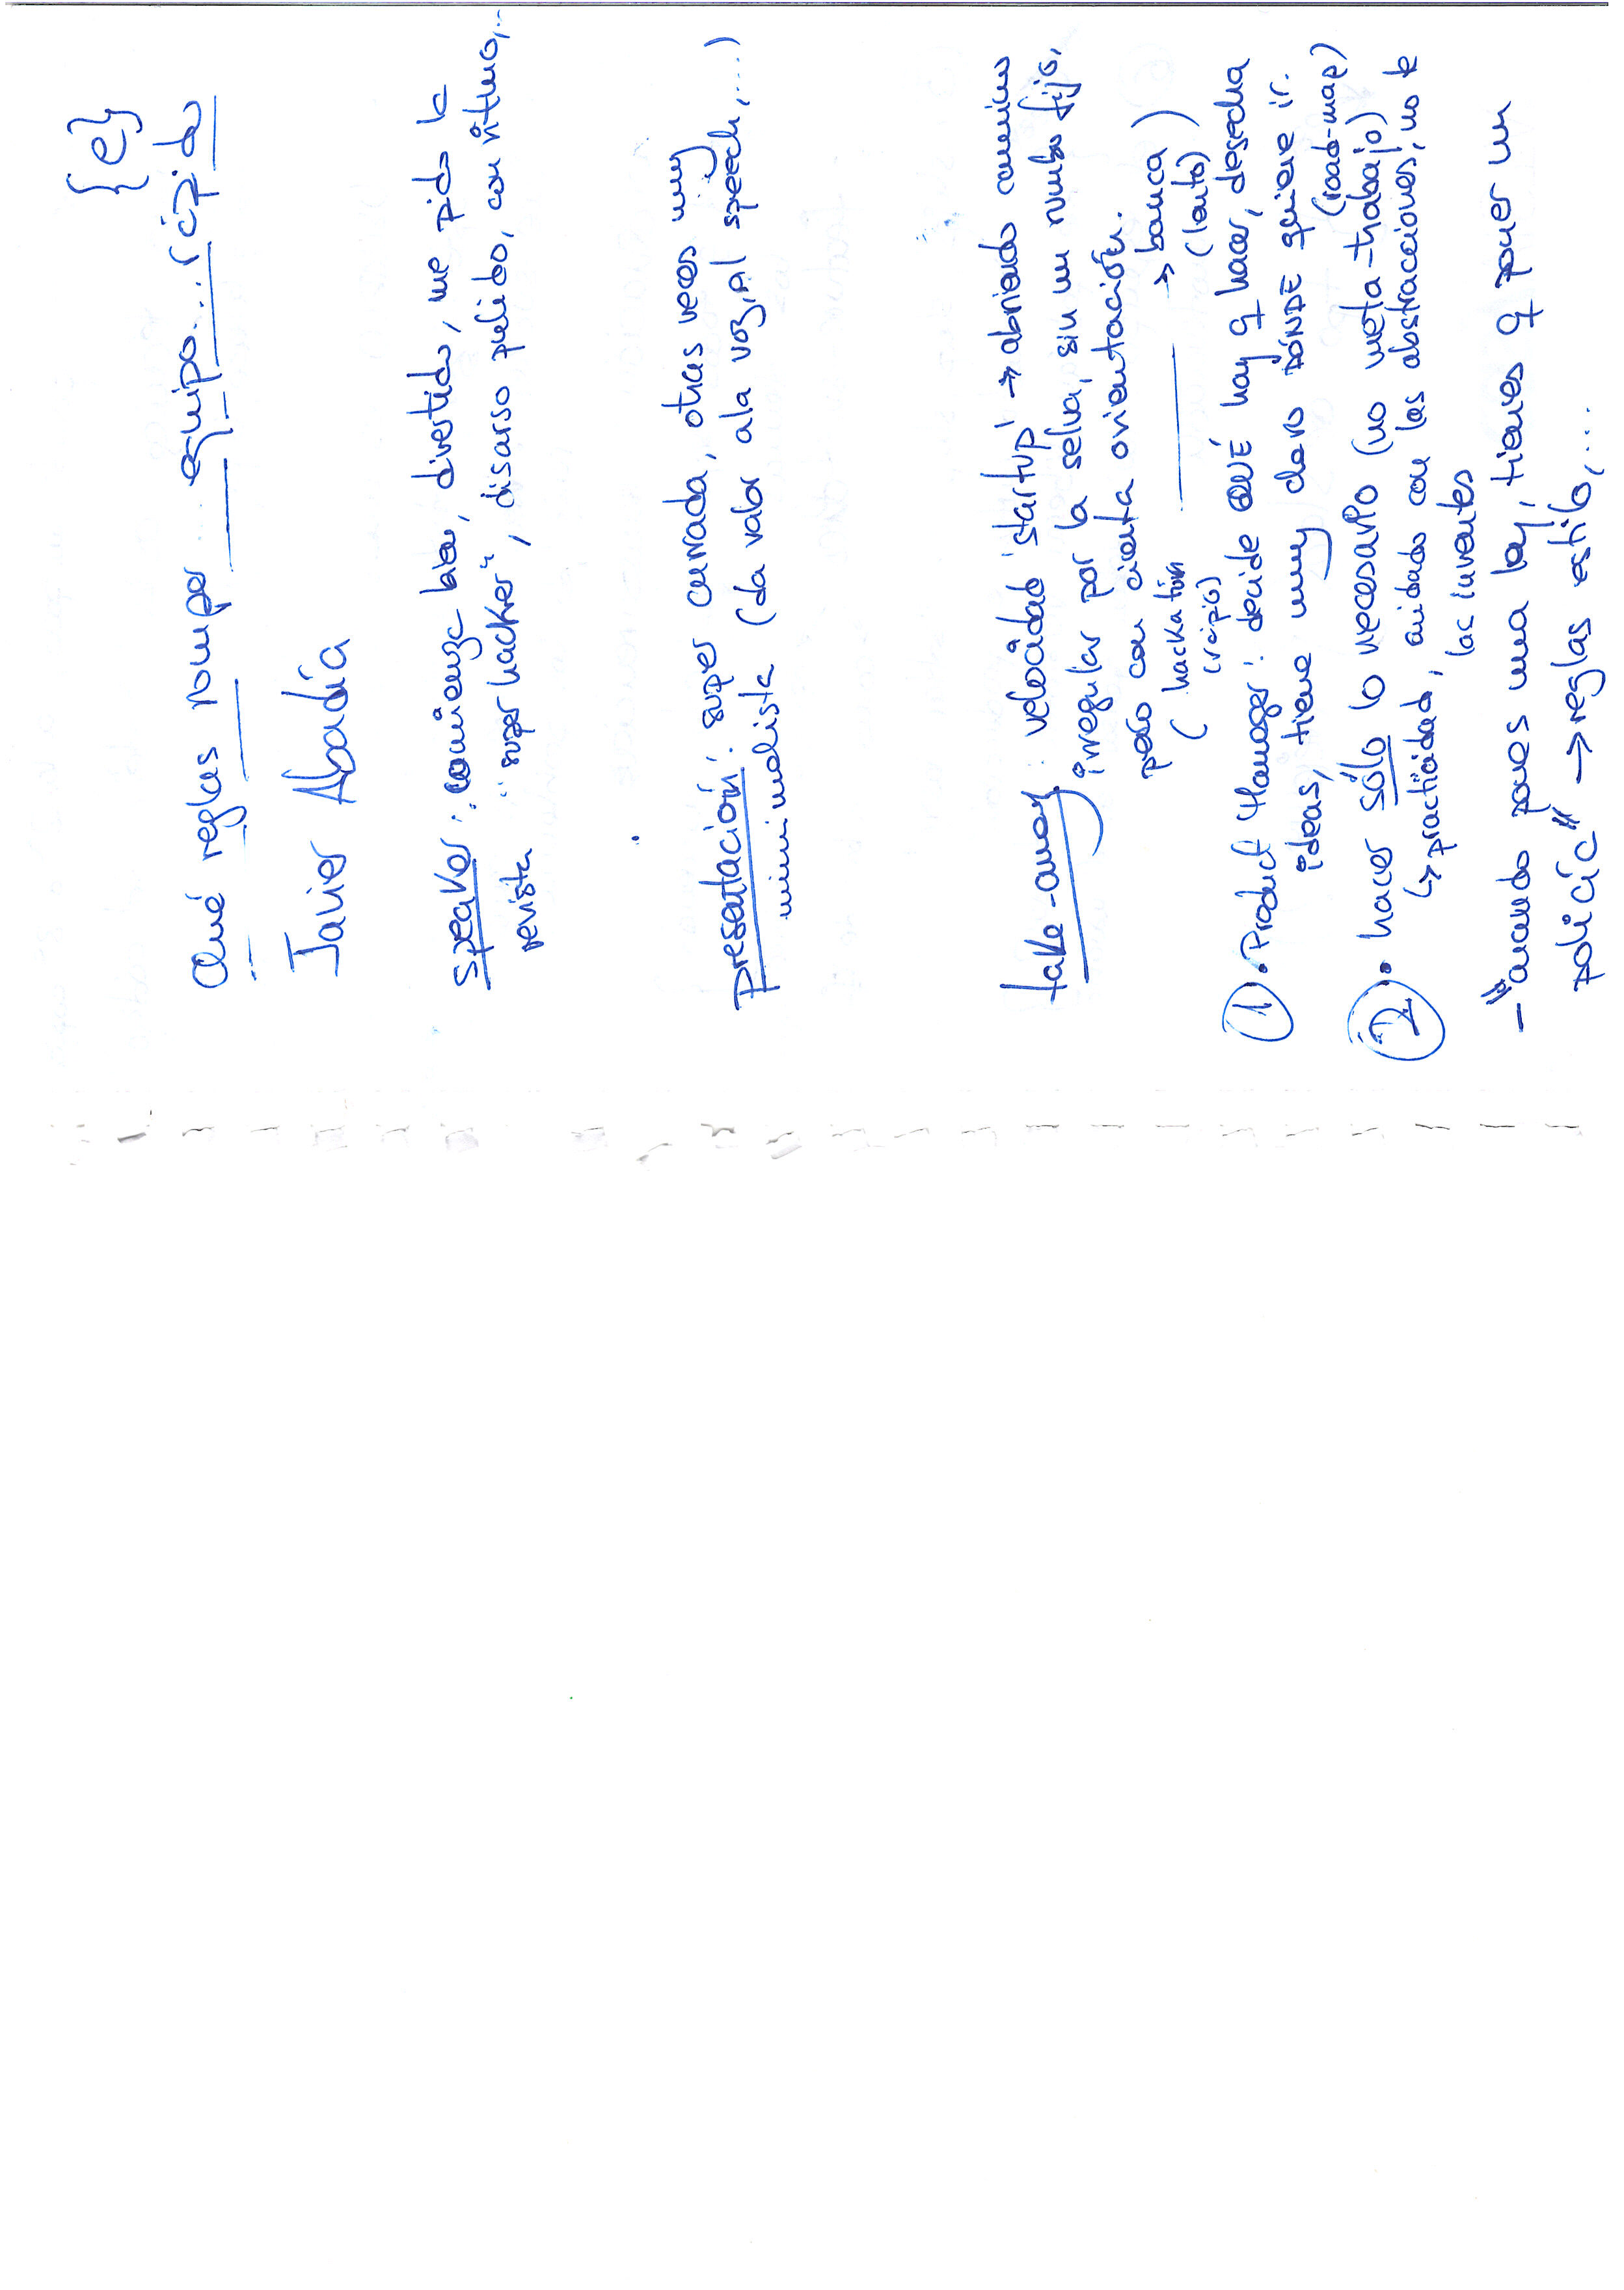 {e}
Qué reglas romper ... equipo... rápido
Javier Abadía
speaker : comienza bien, divertido, me pido la
revista "super hacker", discurso pulido, con ritmo,...
presentación : super currada, otras veces muy
minimalista (da valor a la voz, al speech, ...)
take-away : velocidad 'startup' → abriendo camino
irregular por la selva, sin un rumbo fijo,
pero con cierta orientación.
( hackatón ——— → banca )
(rápio) (lento)
1 • Product Manager : decide QUÉ hay q hacer, desecha
ideas, tiene muy claro DÓNDE quiere ir.
(road-map)
2 • hacer sólo lo necesario (no meta-trabajo)
↳ practicidad, cuidado con las abstracciones, no te
las inventes
- "cuando pones una ley, tienes q poner un
policía" → reglas estilo, ...